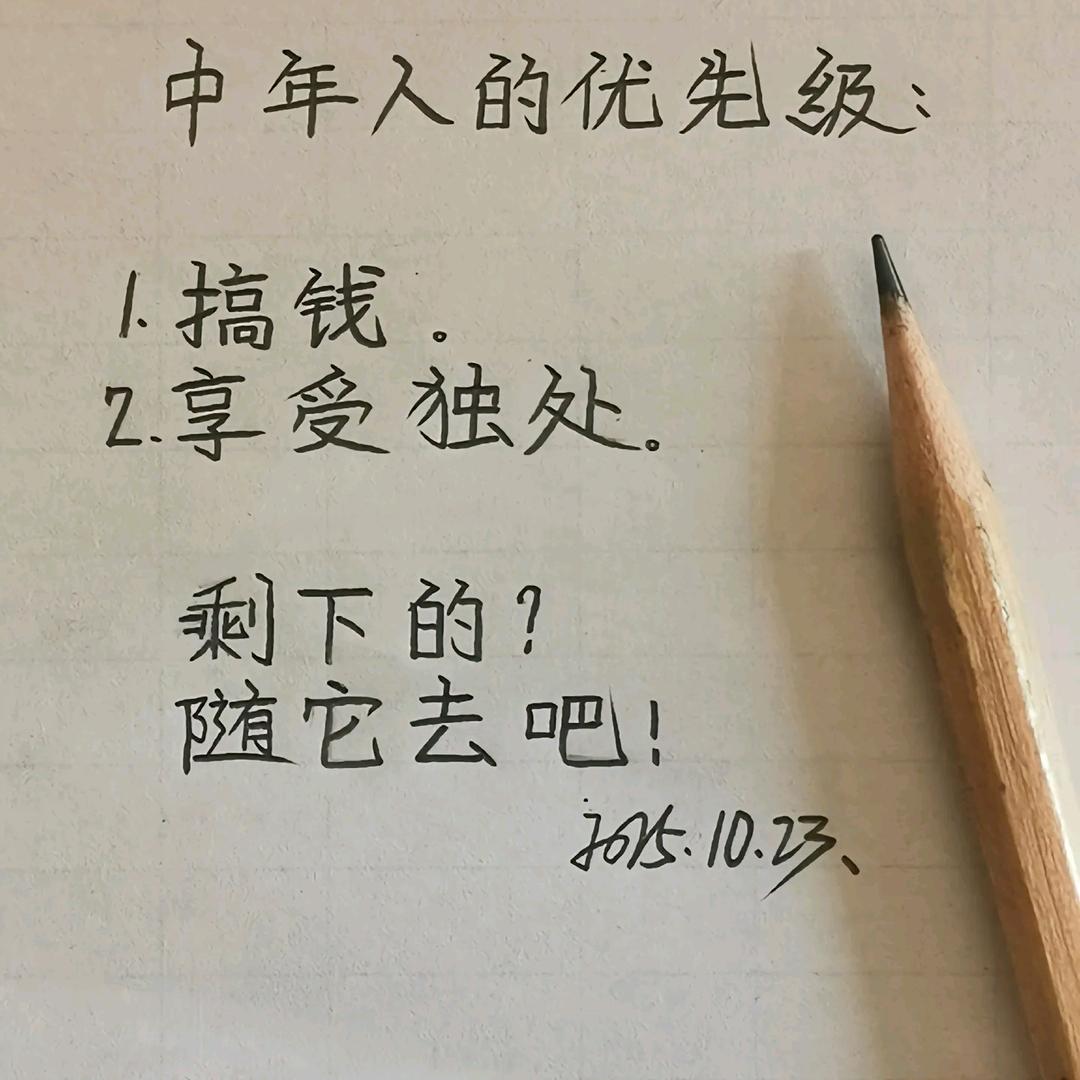 中年人的优先级：
1.搞钱。
2.享受独处。
剩下的？
随它去吧！
2025.10.23、